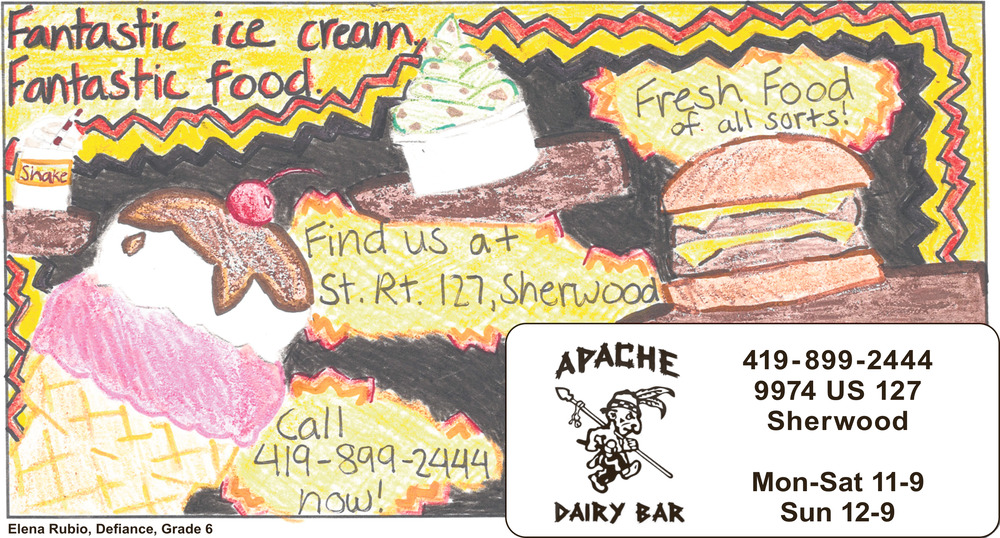 Fantastic ice cream.
Fantastic food.
Shake
Fresh Food
of all sorts!
Find us at
St. Rt. 127, Sherwood
Call
419-899-2444
now!
APACHE
DAIRY BAR
419-899-2444
9974 US 127
Sherwood
Mon-Sat 11-9
Sun 12-9
Elena Rubio, Defiance, Grade 6